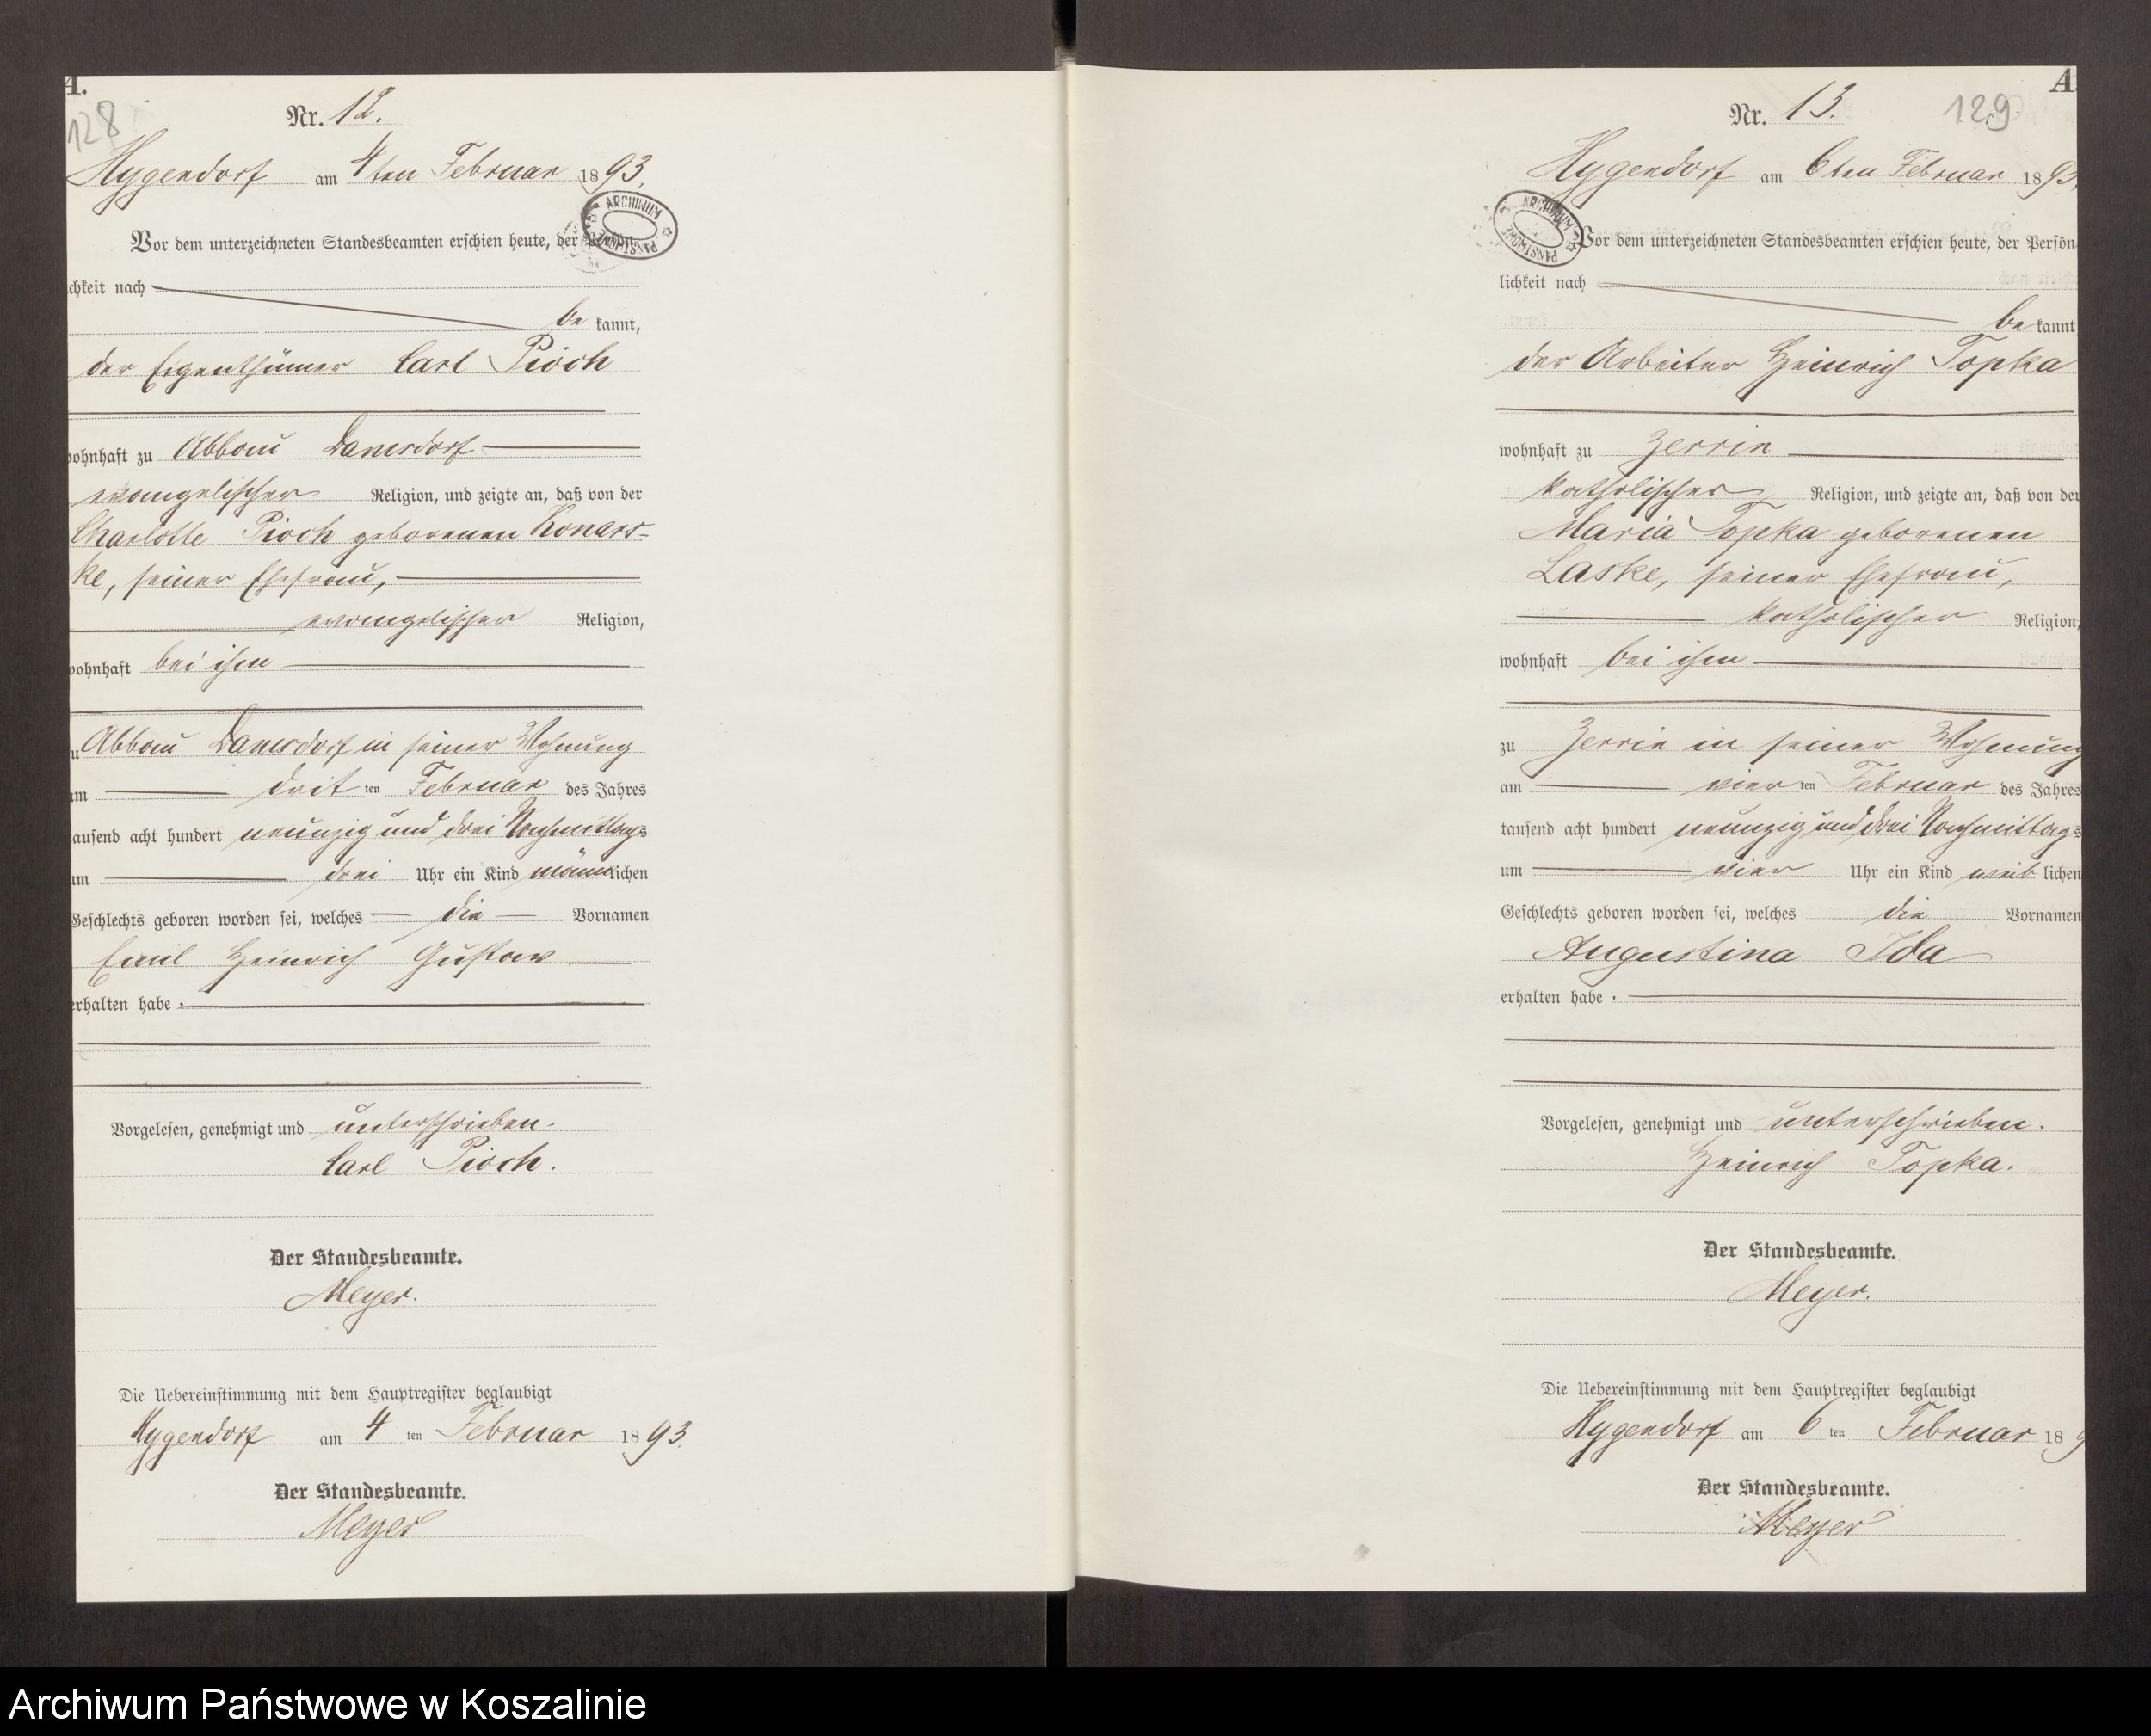 A.
128
Nr. 12.
Hygendorf am 4ten Februar 1893.
Vor dem unterzeichneten Standesbeamten erschien heute, der Persön-
ARCHIWUM PAŃSTWOWE
chkeit nach
be kannt,
der Eigenthümer Carl Pioch
wohnhaft zu Abbau Damsdorf
evangelischer Religion, und zeigte an, daß von der
Charlotte Pioch geborenen Konars-
ke, seiner Ehefrau,
evangelischer Religion,
wohnhaft bei ihm
zu Abbau Damsdorf in seiner Wohnung
am drit ten Februar des Jahres
tausend acht hundert neunzig und drei Nachmittags
um drei Uhr ein Kind männlichen
Geschlechts geboren worden sei, welches die Vornamen
Emil Heinrich Gustav
erhalten habe.
Vorgelesen, genehmigt und unterschrieben.
Carl Pioch.
Der Standesbeamte.
Meyer.
Die Uebereinstimmung mit dem Hauptregister beglaubigt
Hygendorf am 4 ten Februar 1893.
Der Standesbeamte.
Meyer
A.
129
Nr. 13.
Hygendorf am 6ten Februar 1893.
ARCHIWUM PAŃSTWOWE
Vor dem unterzeichneten Standesbeamten erschien heute, der Persön-
lichkeit nach
be kannt
der Arbeiter Heinrich Topka
wohnhaft zu Zerrin
katholischer Religion, und zeigte an, daß von der
Maria Topka geborenen
Laske, seiner Ehefrau,
katholischer Religion,
wohnhaft bei ihm
zu Zerrin in seiner Wohnung
am vier ten Februar des Jahres
tausend acht hundert neunzig und drei Nachmittags
um vier Uhr ein Kind weib lichen
Geschlechts geboren worden sei, welches die Vornamen
Augustina Ida
erhalten habe.
Vorgelesen, genehmigt und unterschrieben.
Heinrich Topka.
Der Standesbeamte.
Meyer.
Die Uebereinstimmung mit dem Hauptregister beglaubigt
Hygendorf am 6 ten Februar 189
Der Standesbeamte.
Meyer
Archiwum Państwowe w Koszalinie